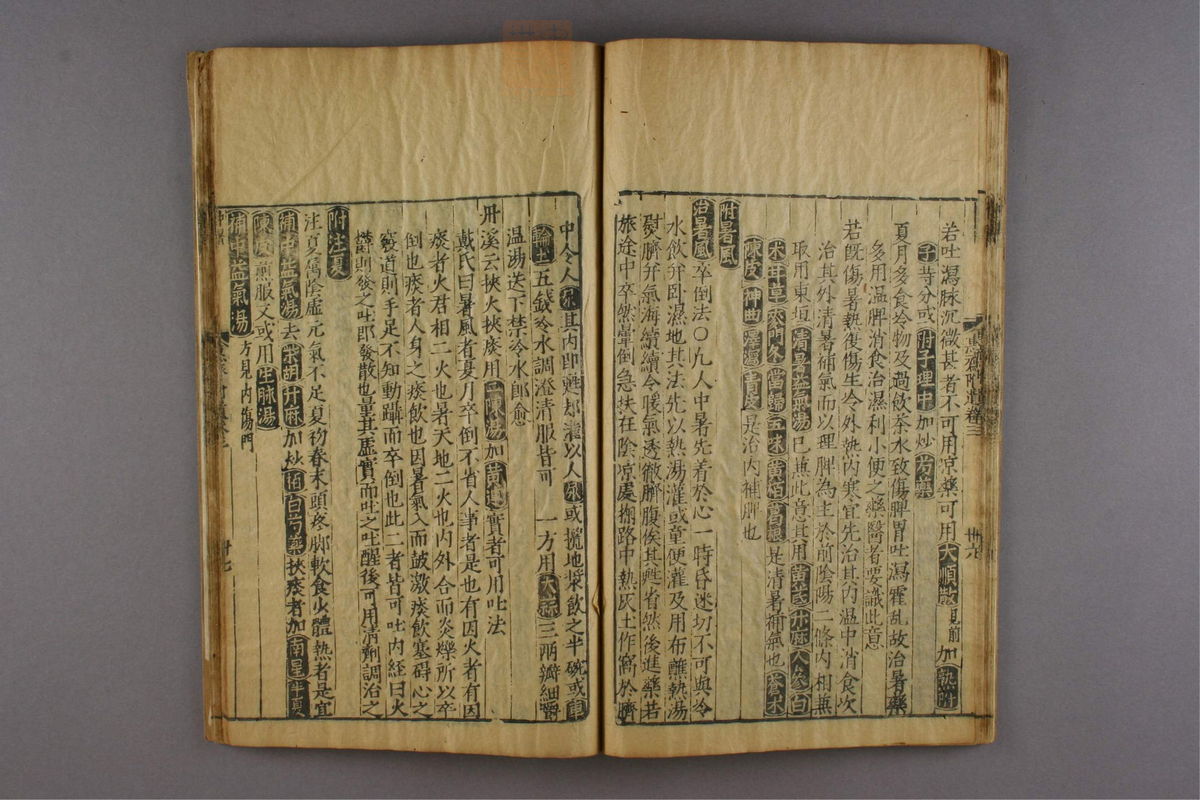 若吐瀉脉沉微甚者不可用凉藥可用大順散見前加熟附
子等分或附子理中加炒芍藥
夏月多食冷物及過飲茶水致傷脾胃吐瀉霍乱故治暑藥
多用温脾消食治濕利小便之藥醫者要識此意
若既傷暑熱復傷生冷外熱内寒宜先治其内温中消食次
治其外清暑補氣而以理脾為主於前陰陽二條内相無
取用東垣清暑益氣湯已蕪此意其用黄芪升麻人參白
术甘草麥門冬當歸五味黄栢葛根是清暑補氣也蒼术
陳皮神曲澤瀉青皮是治内補脾也
附暑風
治暑風卒倒法〇九人中暑先着於心一時昏迷切不可與冷
水飲并卧濕地其法先以熱湯灌或童便灌及用布蘸熱湯
熨臍并氣海續續令暖氣透徹臍腹俟其甦省然後進藥若
旅途中卒然暈倒急扶在陰凉處掬路中熱灰土作窩於臍
中令人尿其内即甦却灌以人尿或攪地漿飲之半碗或車
輪土五錢冷水調澄清服皆可 一方用大蒜三兩瓣細嚼
温湯送下禁冷水即愈
丹溪云挾火挾痰用二陳湯加黄連實者可用吐法
戴氏曰暑風者夏月卒倒不省人事者是也有因火者有因
痰者火君相二火也暑天地二火也内外合而炎爍所以卒
倒也痰者人身之痰飲也因暑氣入而鼓激痰飲塞碍心之
竅道則手足不知動躡而卒倒也此二者皆可吐内經曰火
欝則發之吐即發散也量其虚實而吐之吐醒後可用清劑調治之
附注夏
注夏属陰虚元氣不足夏初春末頭疼脚軟食少體熱者是宜
補中益氣湯去柴胡升麻加炒栢白芍藥挾痰者加南星半夏
陳皮煎服又或用生脉湯
補中益氣湯方見内傷門